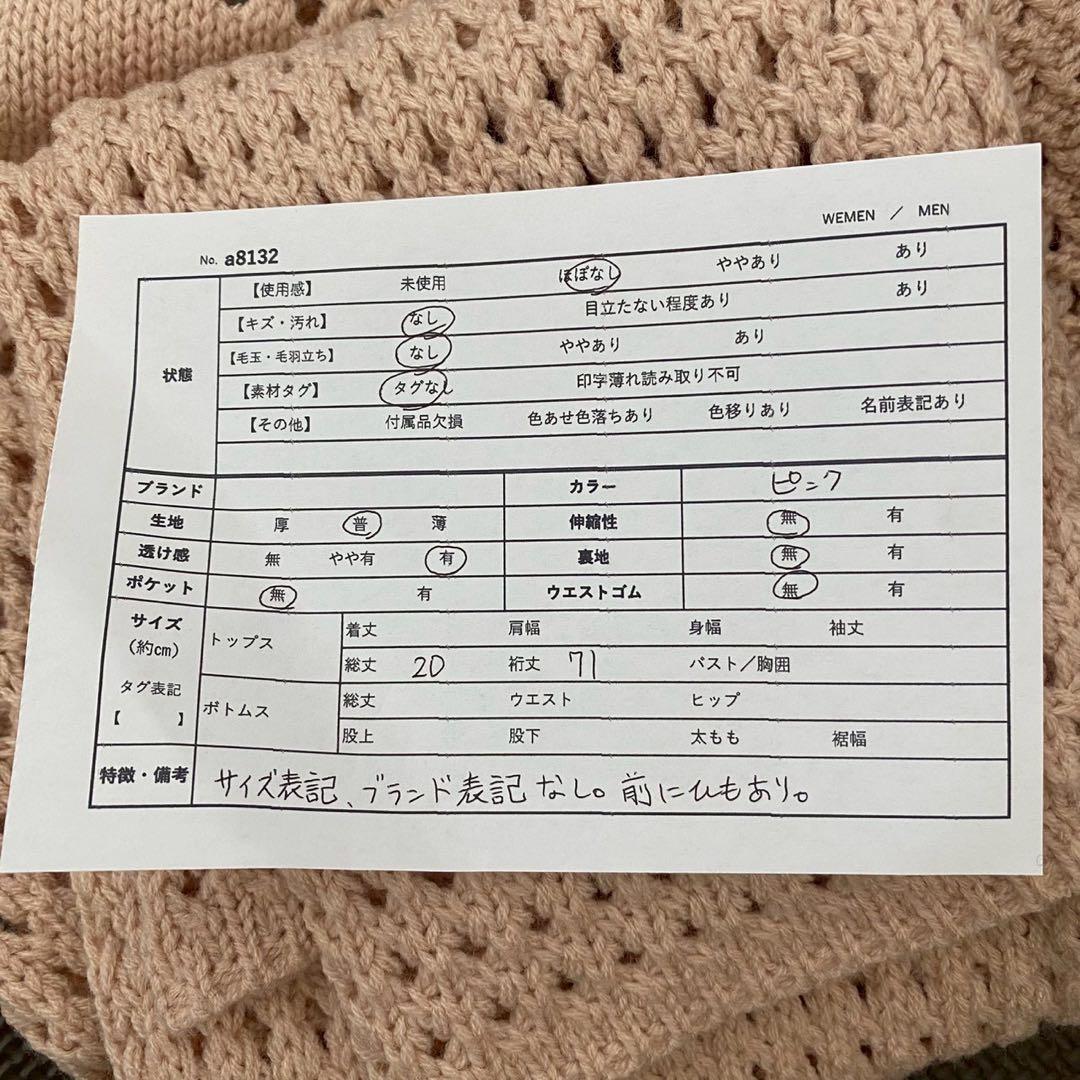 WEMEN / MEN
No. a8132
状態
【使用感】 未使用 ほぼなし ややあり あり
【キズ・汚れ】 なし 目立たない程度あり あり
【毛玉・毛羽立ち】 なし ややあり あり
【素材タグ】 タグなし 印字薄れ読み取り不可
【その他】 付属品欠損 色あせ色落ちあり 色移りあり 名前表記あり
ブランド カラー ピンク
生地 厚 普 薄 伸縮性 無 有
透け感 無 やや有 有 裏地 無 有
ポケット 無 有 ウエストゴム 無 有
サイズ
(約cm)
タグ表記
【 】
トップス
着丈 肩幅 身幅 袖丈
総丈 20 裄丈 71 バスト／胸囲
ボトムス
総丈 ウエスト ヒップ
股上 股下 太もも 裾幅
特徴・備考 サイズ表記、ブランド表記なし。前にひもあり。